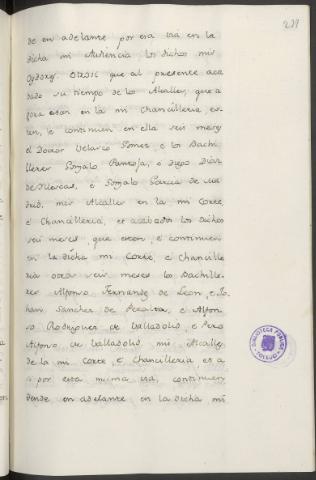 239
de en adelante por esa via en la
dicha mi Audiencia los dichos mis
Oydores. Otrosi que al presente aca
bado su tiempo de los Alcalles, que a
gora estan en la mi Chancilleria, es
ten, e continuen en ella seis meses
el Doctor Velasco Gomez, e los Bachi
lleres Gonzalo Pantoja, e Diego Diaz
de Illescas, e Gonzalo Garcia de Ma
drid, mis Alcalles en la mi Corte,
e Chancilleria, et acabados los dichos
seis meses, que esten, e continuen
en la dicha mi Corte, e Chancille
ria otros seis meses los Bachille
res Alfonso Fernandez de Leon, e Jo
han Sanchez de Peralta, e Alfon
so Rodriguez de Valladolid, e Pero
Alfonso de Valladolid, mis Alcalles
de la mi Corte, e Chancilleria, et a
si por esta misma via, continuen
dende en adelante en la dicha mi
BIBLIOTECA PÚBLICA
TOLEDO